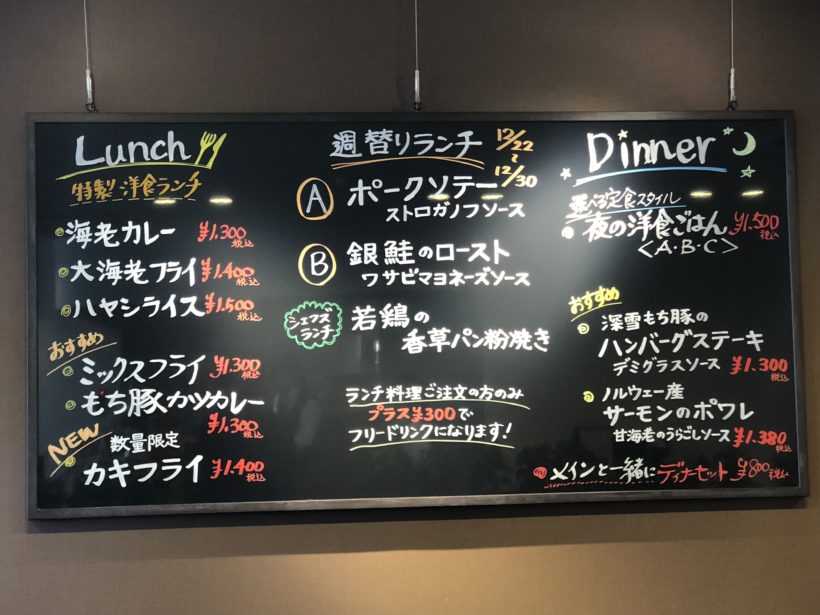 Lunch
特製 洋食ランチ
海老カレー ¥1.300 税込
大海老フライ ¥1.400 税込
ハヤシライス ¥1.500 税込
おすすめ
ミックスフライ ¥1.300 税込
もち豚カツカレー
¥1.300 税込
NEW
数量限定
カキフライ ¥1.400 税込
週替りランチ 12/22〜12/30
A ポークソテー
ストロガノフソース
B 銀鮭のロースト
ワサビマヨネーズソース
シェフズ
ランチ
若鶏の
香草パン粉焼き
ランチ料理ご注文の方のみ
プラス¥300で
フリードリンクになります!
Dinner
選べる定食スタイル
夜の洋食ごはん ¥1.500 税込
<A・B・C>
おすすめ
深雪もち豚の
ハンバーグステーキ
デミグラスソース ¥1.300 税込
ノルウェー産
サーモンのポワレ
甘海老のうらごしソース ¥1.380 税込
メインと一緒に ディナーセット ¥800 税込